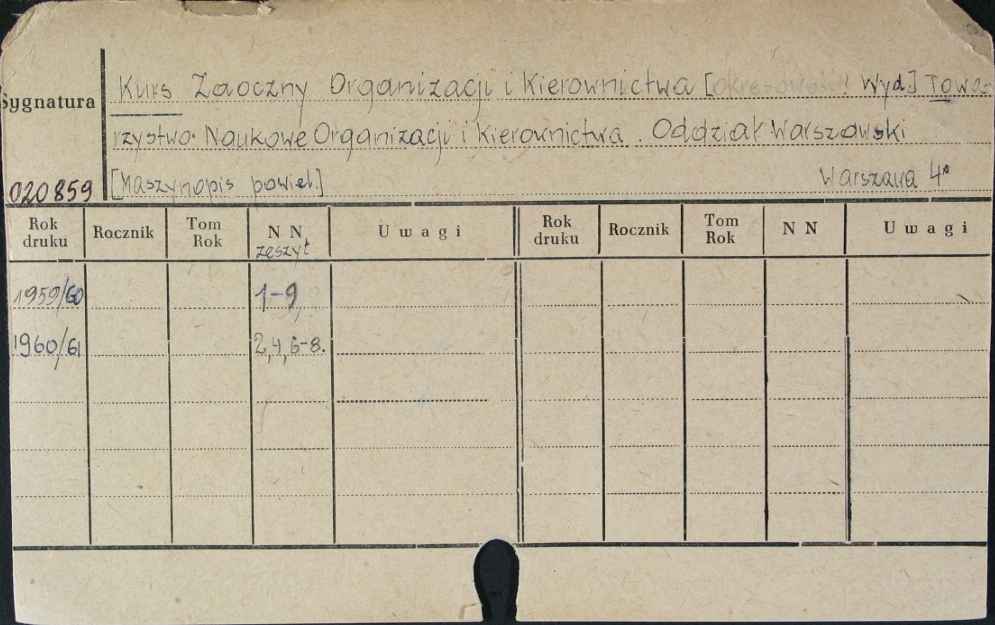 Sygnatura
Kurs Zaoczny Organizacji i Kierownictwa [ Wyd.] Towa-
rzystwo Naukowe Organizacji i Kierownictwa. Oddział Warszawski
020859 [Maszynopis powiel.] Warszawa 4°
Rok druku Rocznik Tom Rok N N zeszyt U w a g i Rok druku Rocznik Tom Rok N N U w a g i
1959/60 1-9,
1960/61 2,4,6-8.